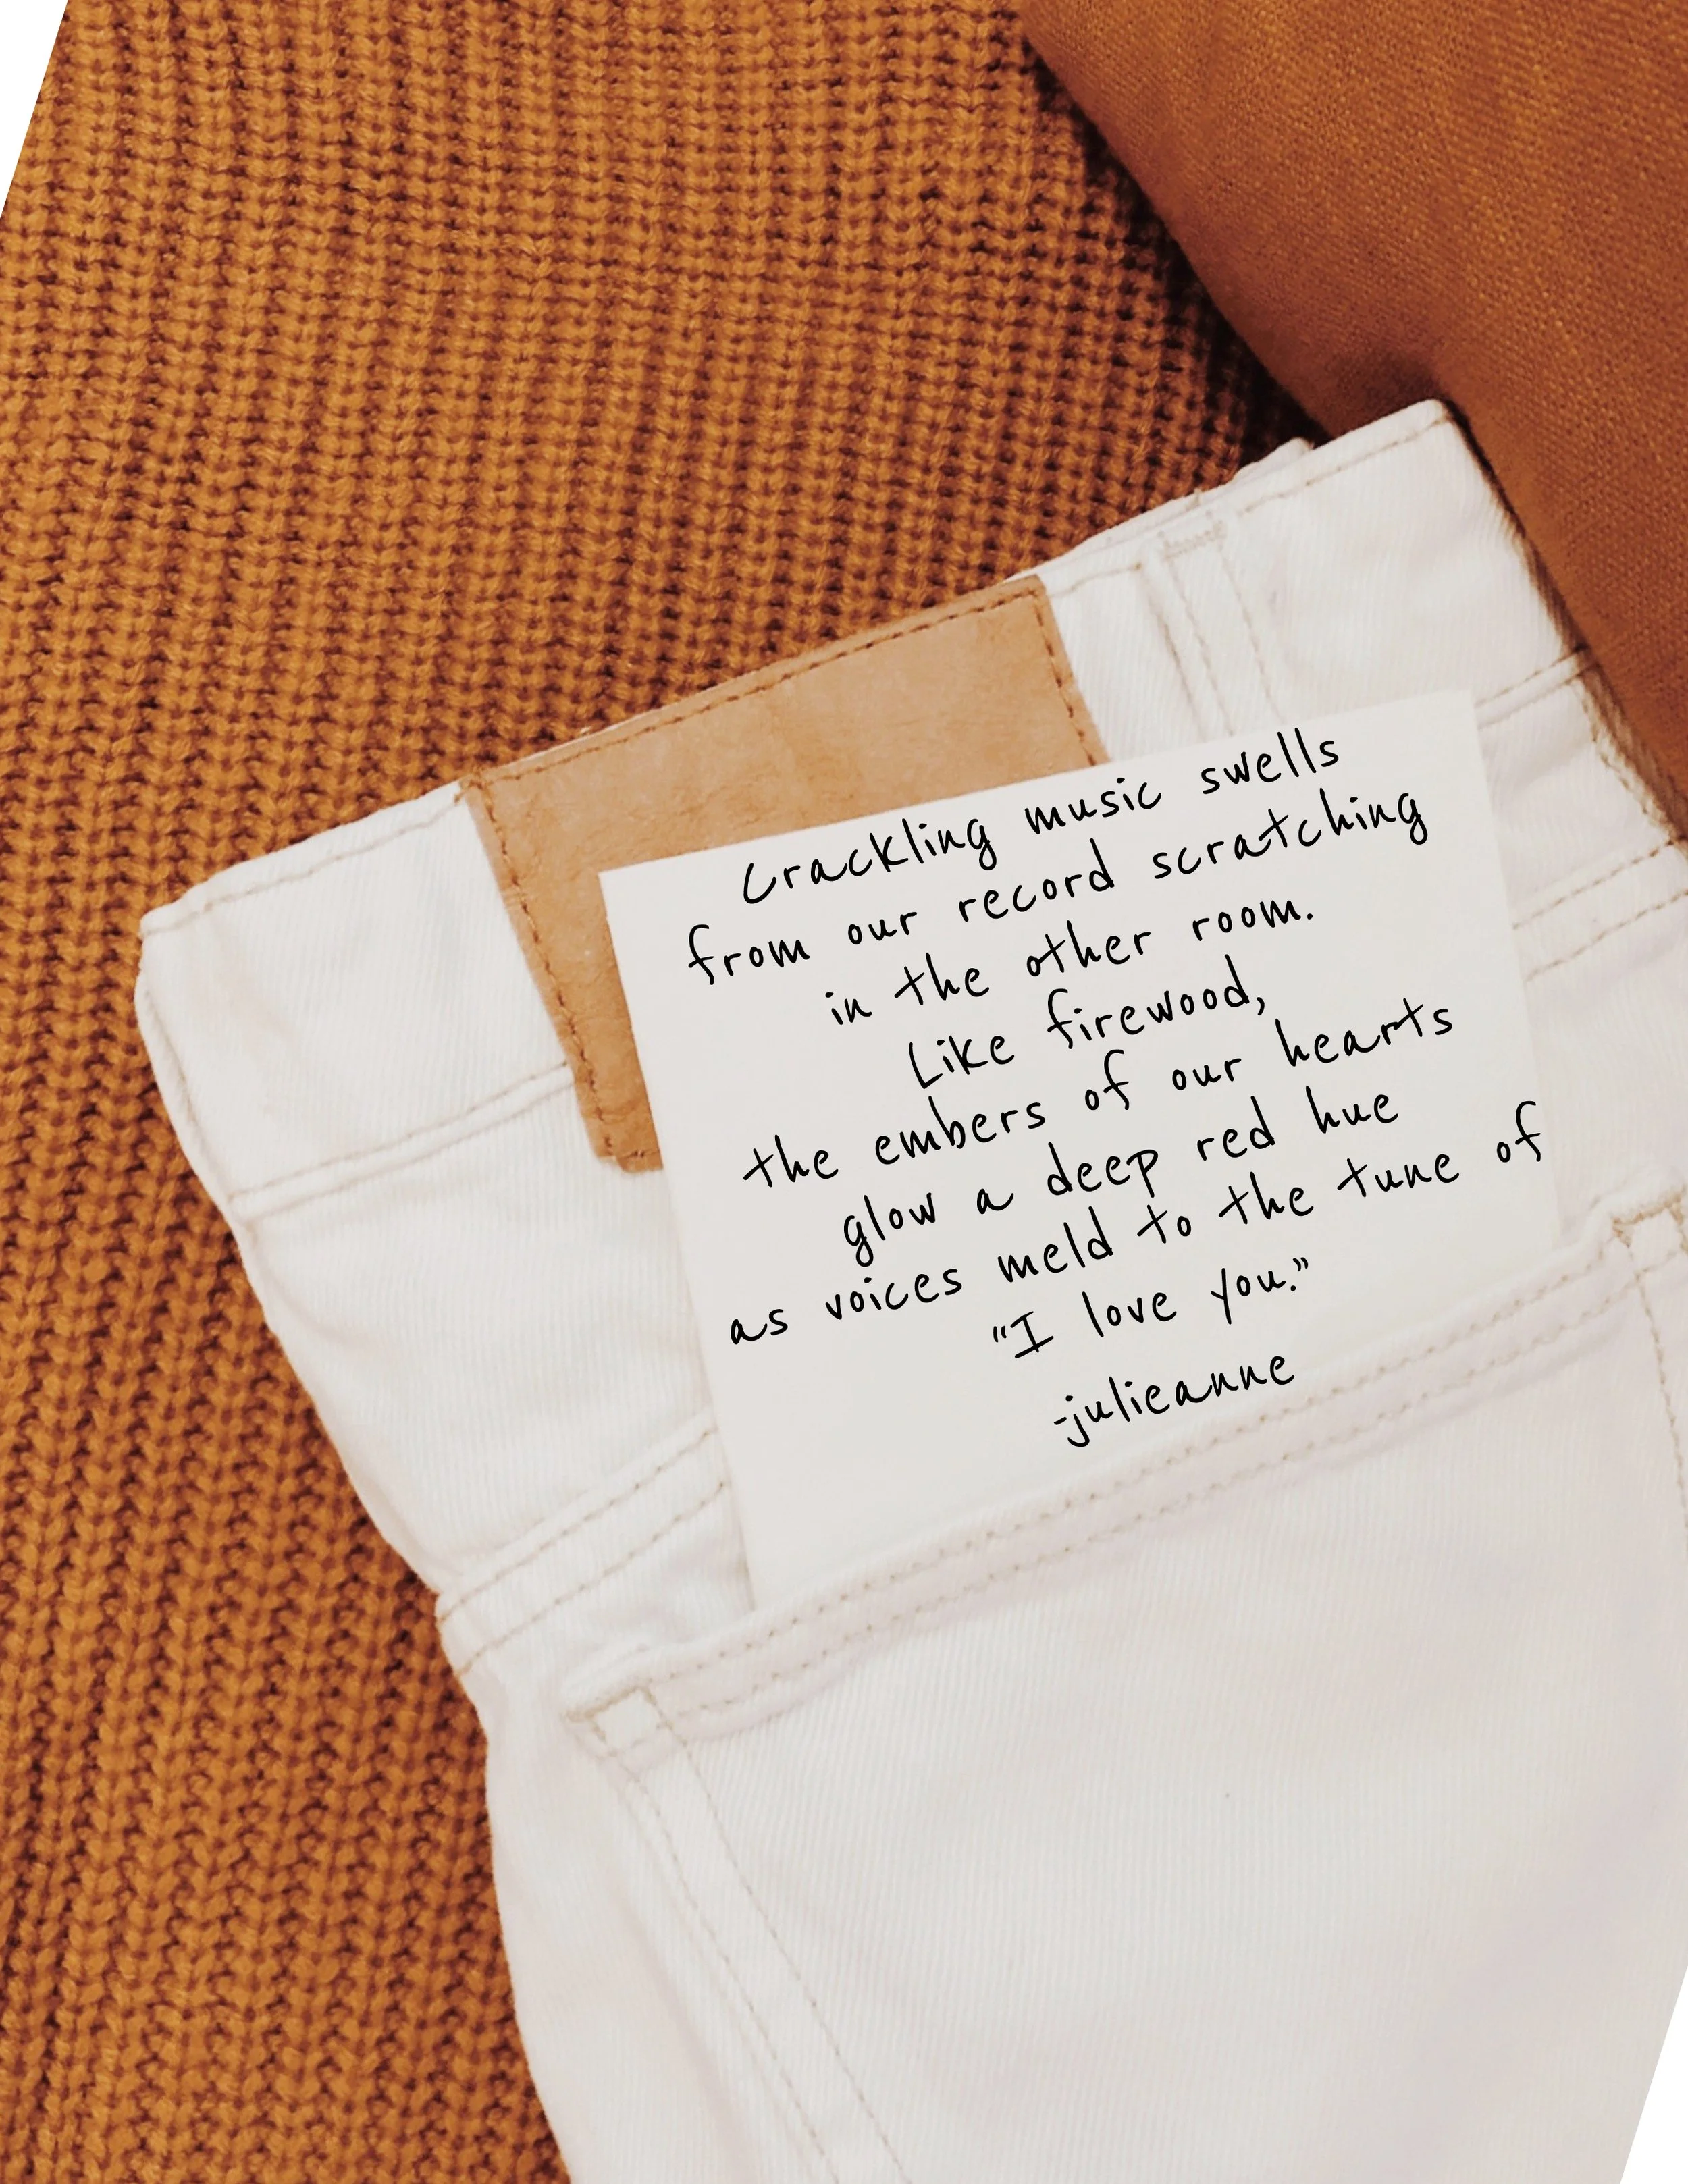 Crackling music swells
from our record scratching
in the other room.
Like firewood,
the embers of our hearts
glow a deep red hue
as voices meld to the tune of
"I love you."
-julieanne